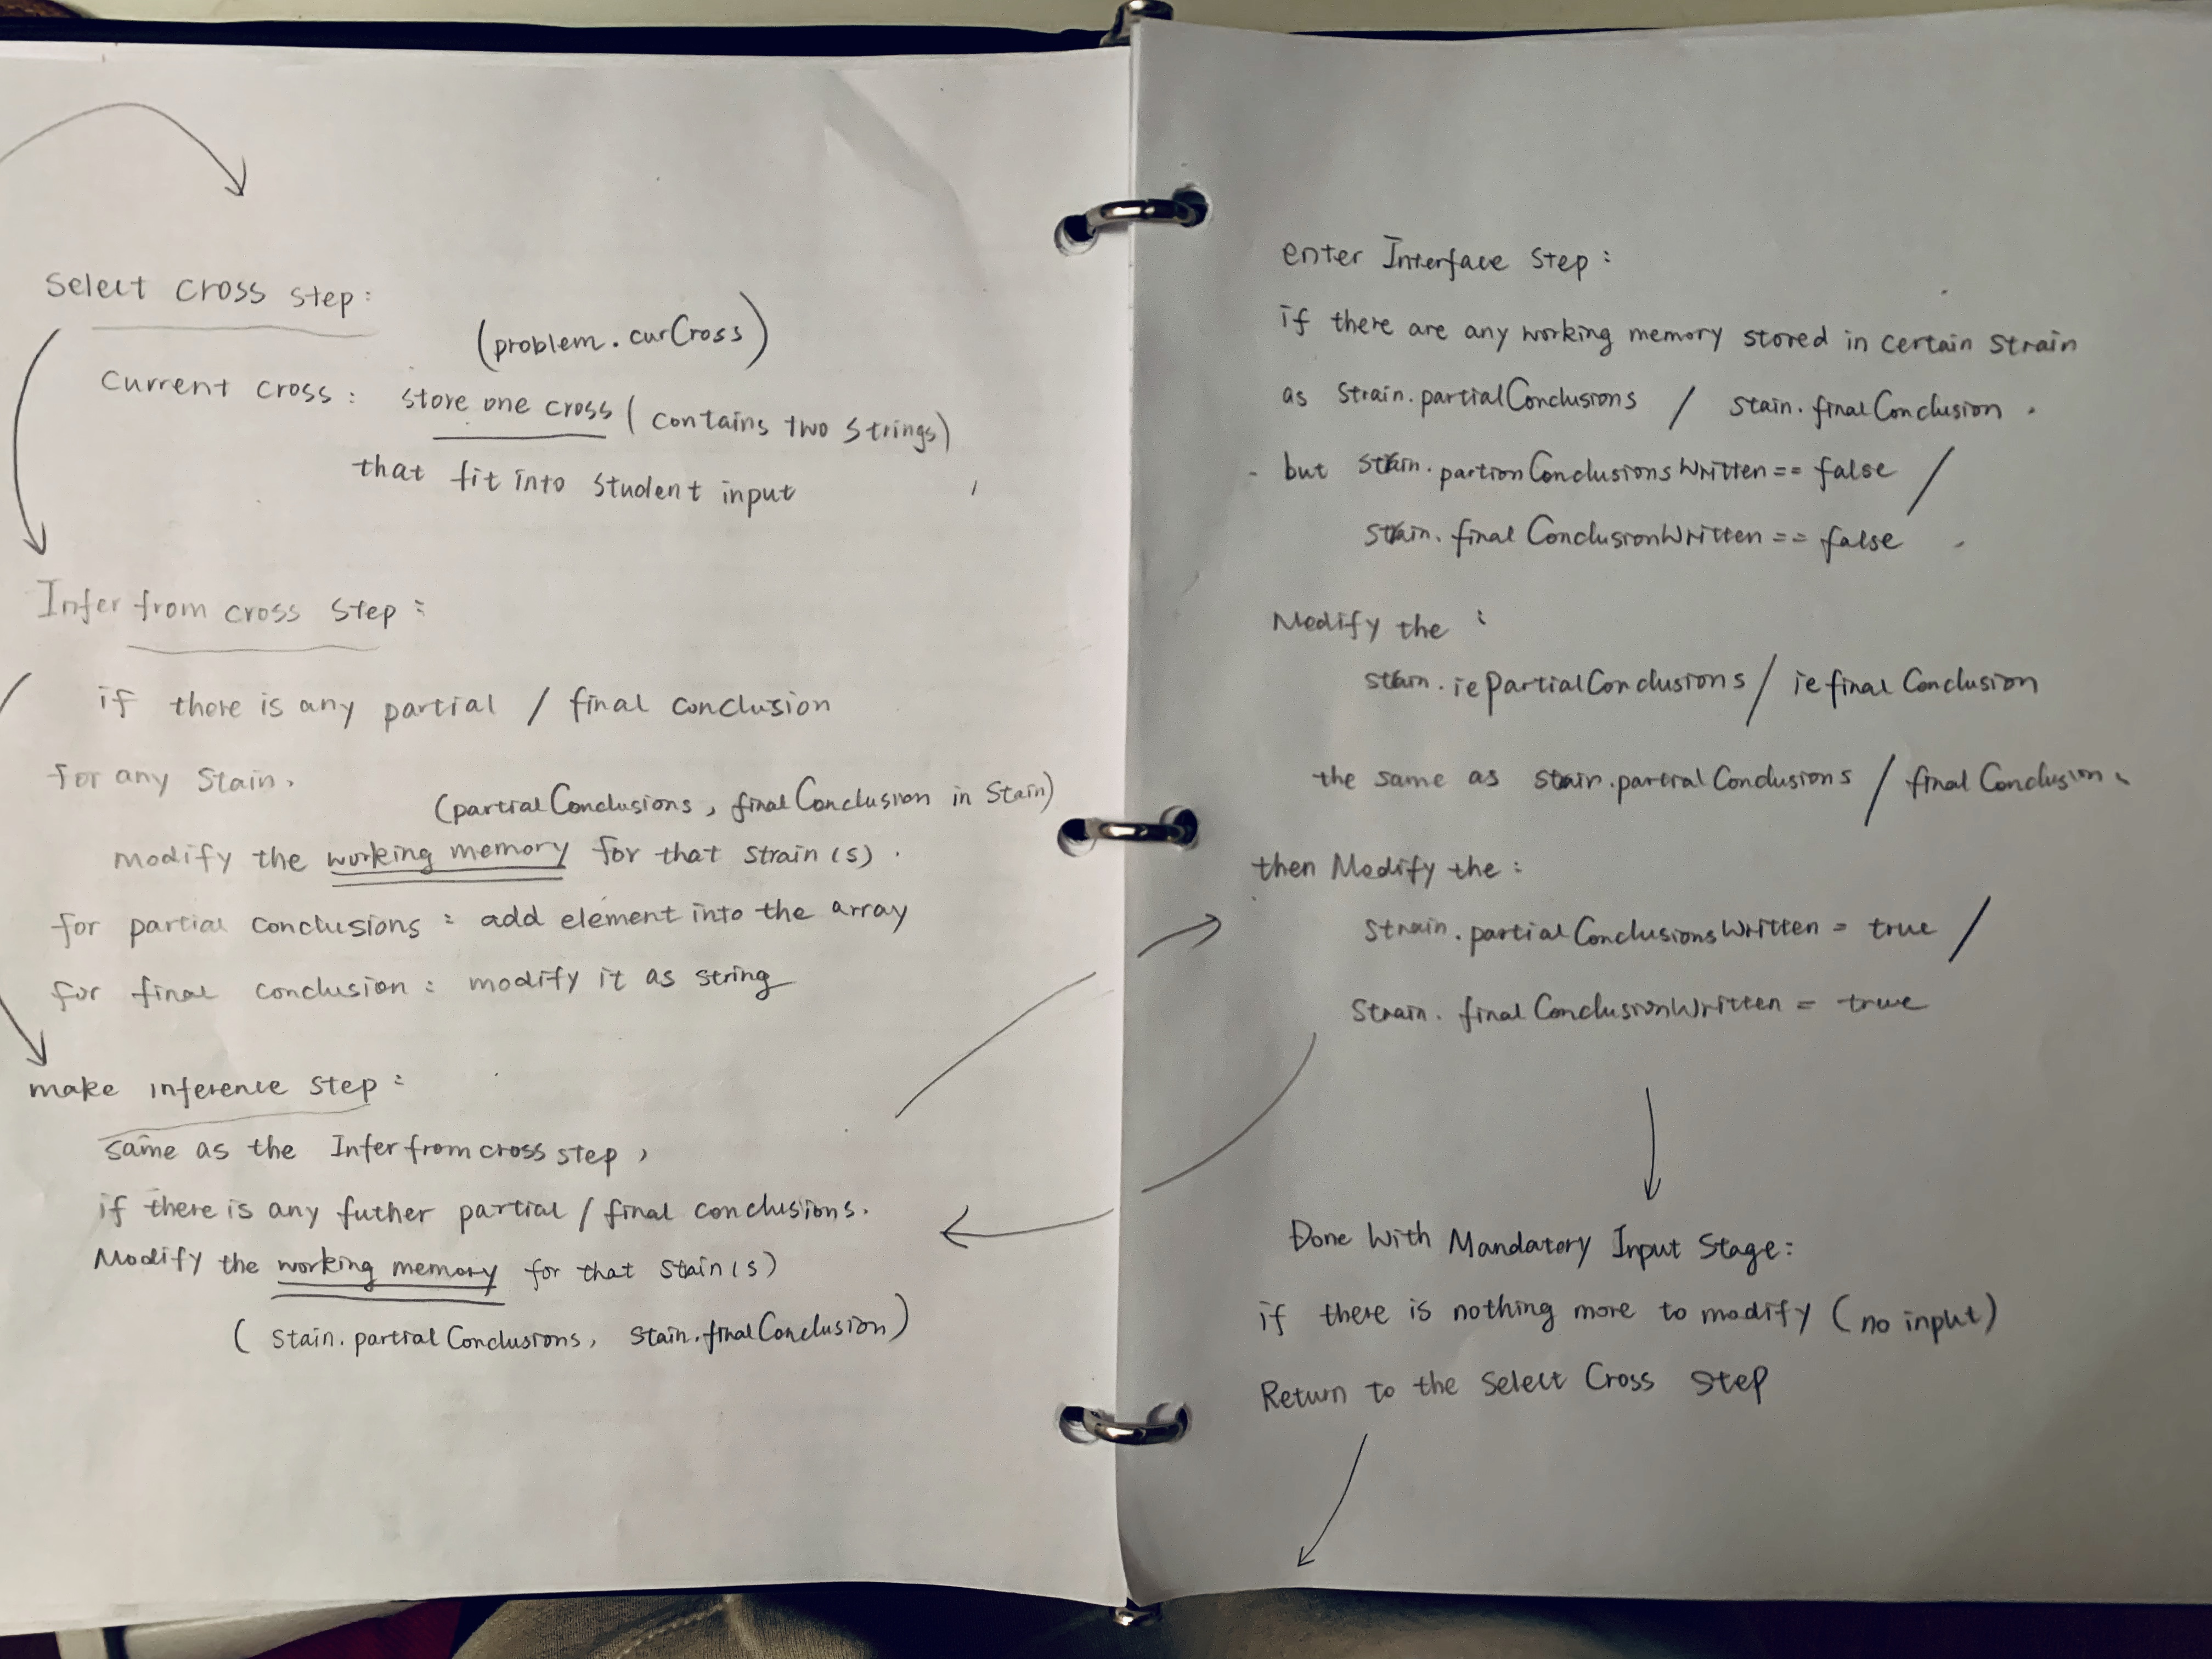 Select cross step:
(problem.curCross)
Current cross: store one cross (contains two strings)
that fit into student input
Infer from cross step:
if there is any partial / final conclusion
for any Stain.
(partialConclusions, finalConclusion in Stain)
modify the working memory for that strain(s).
for partial conclusions: add element into the array
for final conclusion: modify it as string
make inference step:
same as the Infer from cross step,
if there is any futher partial / final conclusions.
Modify the working memory for that Stain(s)
(Stain.partialConclusions, Stain.finalConclusion)
enter Interface step:
if there are any working memory stored in certain strain
as Strain.partialConclusions / Stain.finalConclusion.
but Strain.partionConclusionsWritten == false /
Strain.finalConclusionWritten == false
Modify the:
Strain.iePartialConclusions / iefinalConclusion
the same as Strain.partialConclusions / finalConclusion.
then Modify the:
Strain.partialConclusionsWritten = true /
Strain.finalConclusionWritten = true
Done With Mandatory Input Stage:
if there is nothing more to modify (no input)
Return to the Select Cross Step